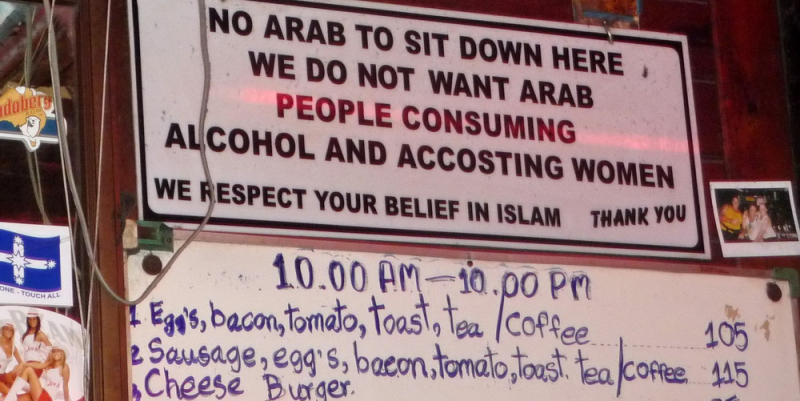 NO ARAB TO SIT DOWN HERE
WE DO NOT WANT ARAB
PEOPLE CONSUMING
ALCOHOL AND ACCOSTING WOMEN
WE RESPECT YOUR BELIEF IN ISLAM THANK YOU
10.00 AM — 10.00 PM
1 Egg's, bacon, tomato, toast, tea / coffee 105
2 Sausage, egg's, bacon, tomato, toast. tea / coffee 115
Cheese Burger.
ONE - TOUCH ALL